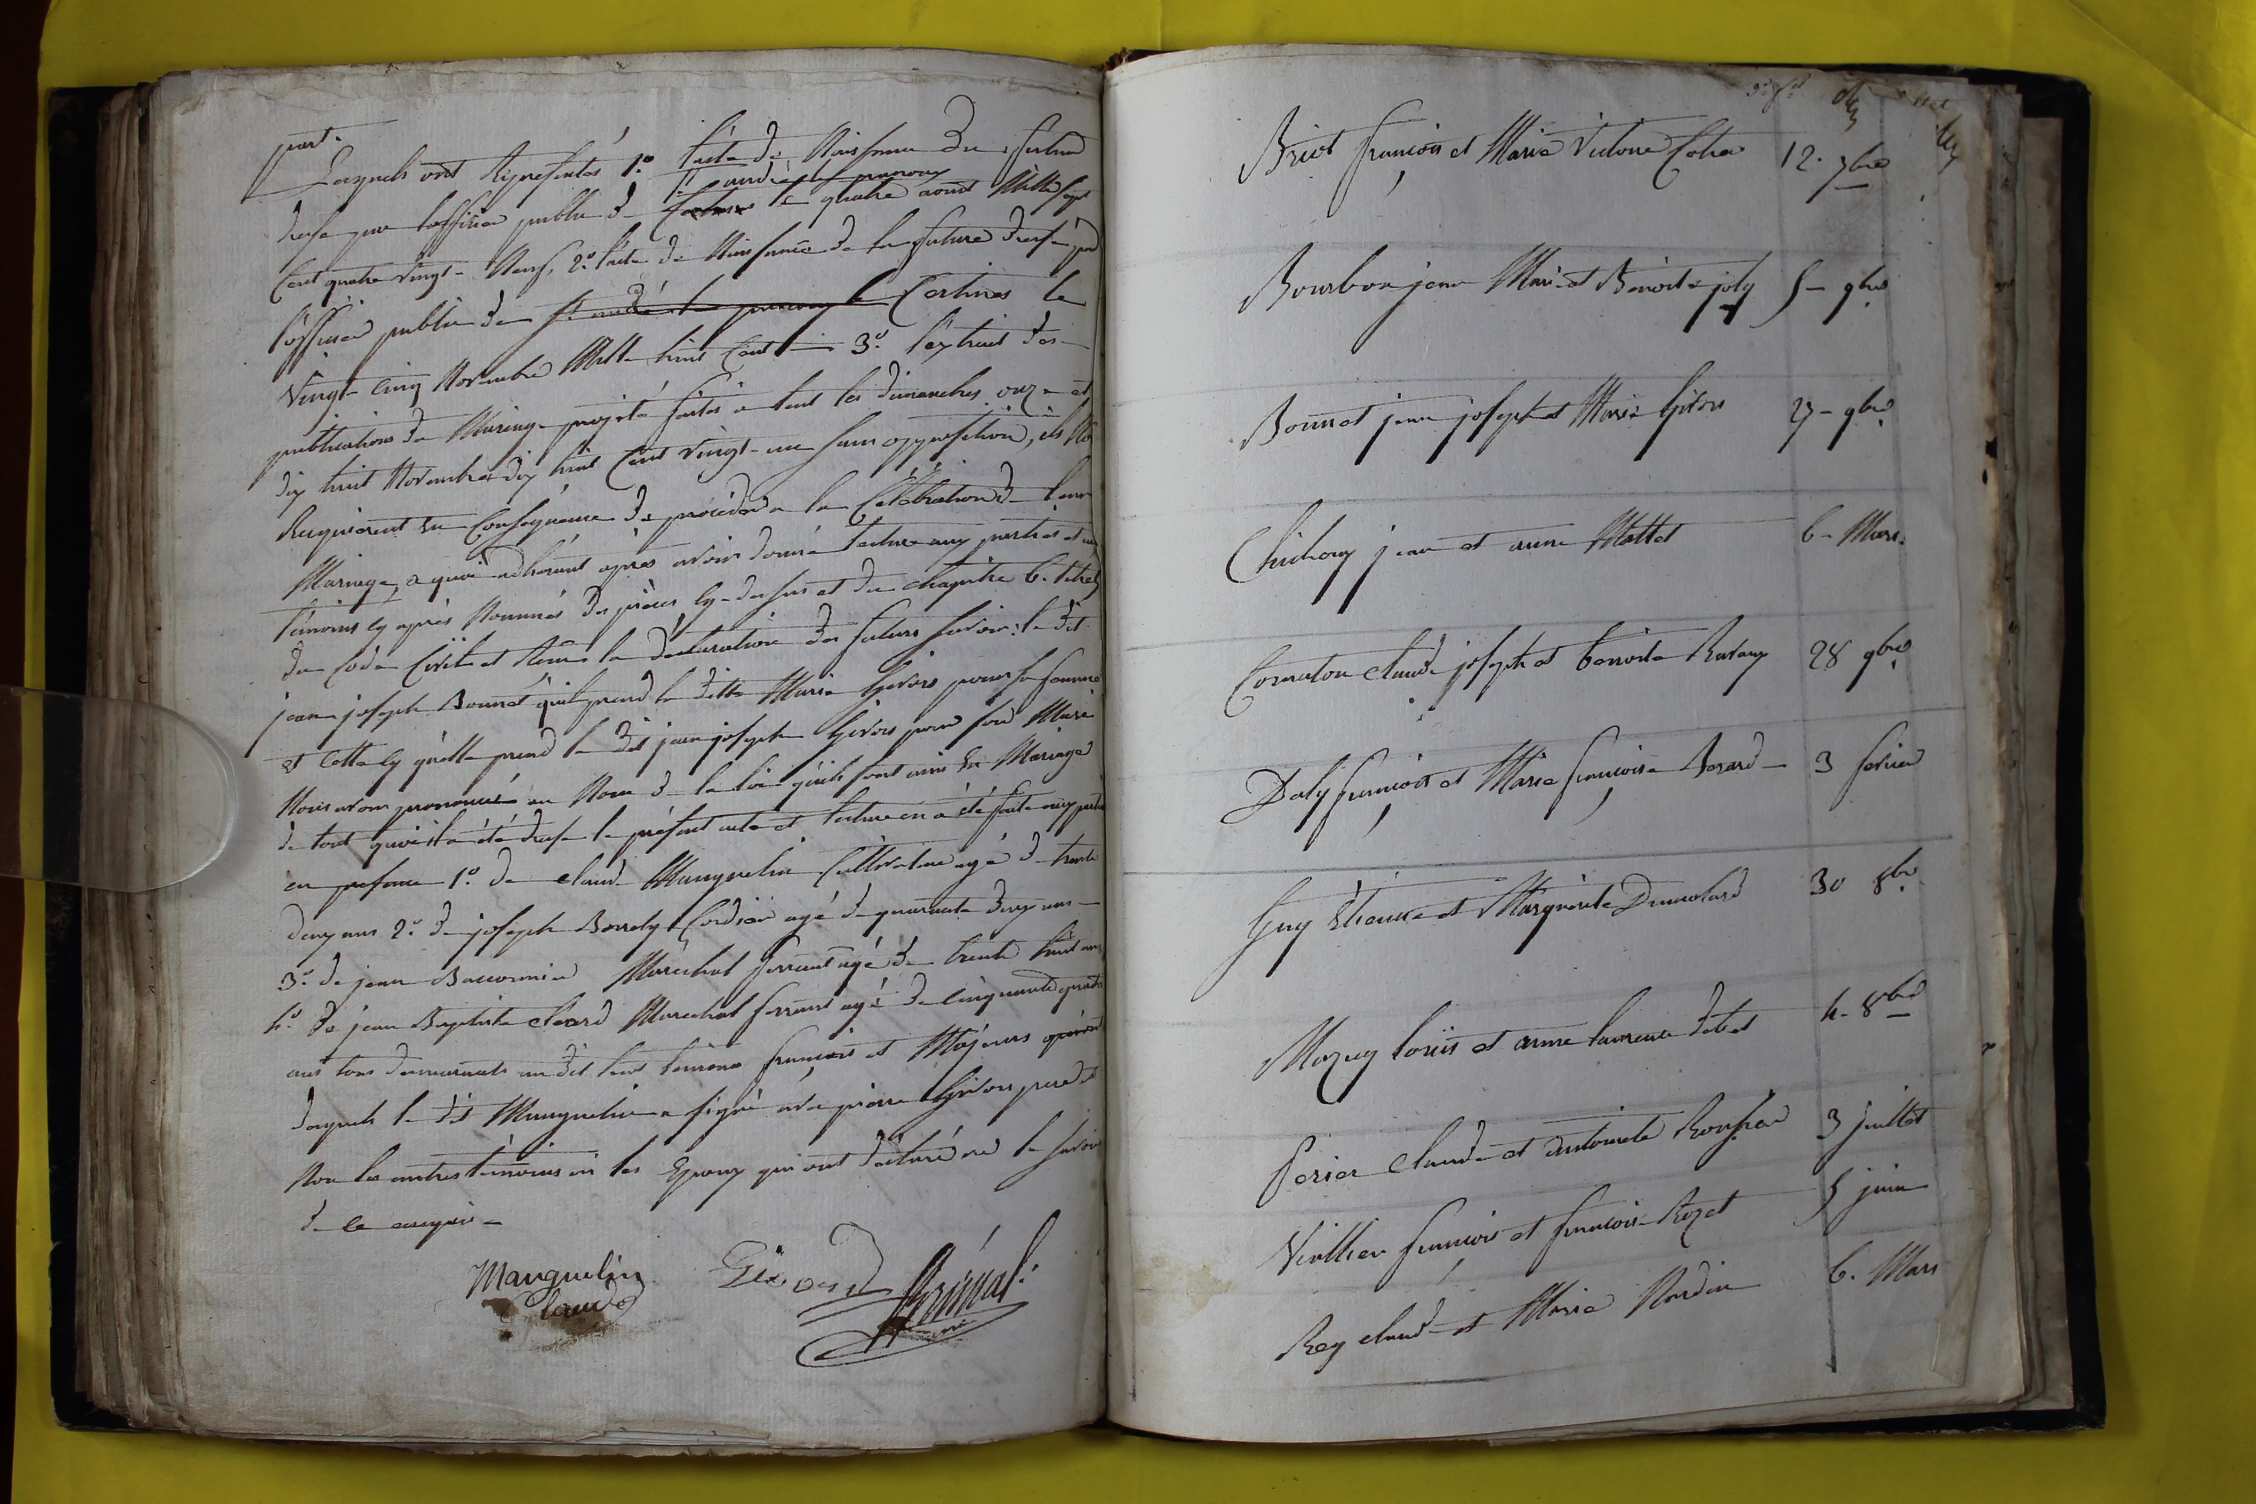 part.
Lesquels ont Représentés 1.° l'acte de Naissance du futur
St. andré le panoux
dressé par l'officier public de Certines le quatre aout Mille sept
Cent quatre vingt-Neuf, 2.° l'acte de Naissance de la future dressé par
l'officier public de St. andré le panoux le Certines le
vingt-cinq Novembre Mille huit Cent 3.° l'extrait des
publications de Mariage projeté faites a tout les dimanches onze et
dix huit Novembre dix huit Cent vingt-un sans opposition, ils
Requierent en Conséquence de procéder a la Célébration de leur
Mariage, a quoi adhérant après avoir donné lecture aux parties et aux
témoins cy après Nommés des pièces cy-dessus et du chapitre 6. titre
du Code Civil et Reçu la déclaration des futurs savoir: le dit
jean joseph Bonnet qu'il prend la ditte Marie Givors pour sa femme
et cette cy qu'elle prend le dit jean joseph Givors pour son Mari
Nous avons prononcé au Nom de la loi qu'ils sont unis en Mariage
de tout quoi il a été dressé le présent acte et lecture en a été faite aux parties
en présence 1.° de claude Manguelin Cultivateur agé de trente
deux ans 2.° de joseph Borrely Cordier agé de quarante deux ans
3.° de jean Maréchal ferrant agé de trente huit ans
4.° de jean Baptiste Maréchal ferrant agé de Cinquante quatre
ans tous demeurants au dit lieu témoins français et Majeurs
desquels le dit Manguelin a signé avec pierre Givors pere
Non les autres témoins ni les Epoux qui ont déclaré ne le savoir
de ce enquis
Manguelin Givord
Claude
Briot françois et Marie Victoire 12. 7bre
Bourbon jean Marie et Benoite joly 5 - 9bre
Bonnet jean joseph et Marie Givors 27 - 9bre
Chichoux jean et anne Mottet 6 - Mars.
Cormaton claude joseph et benoite Ravaux 28 9bre
Daly françois et Marie françoise Berard 3 fevrier
Guy Etienne et Margueritte Dumolard 30 8bre
Mazuy louis et anne laurence 4 - 8bre
Perier claude et antoinette 3 juillet
Vieillier françois et françoise Rozet 5 juin
Rey claude et Marie Nardin 6. Mars